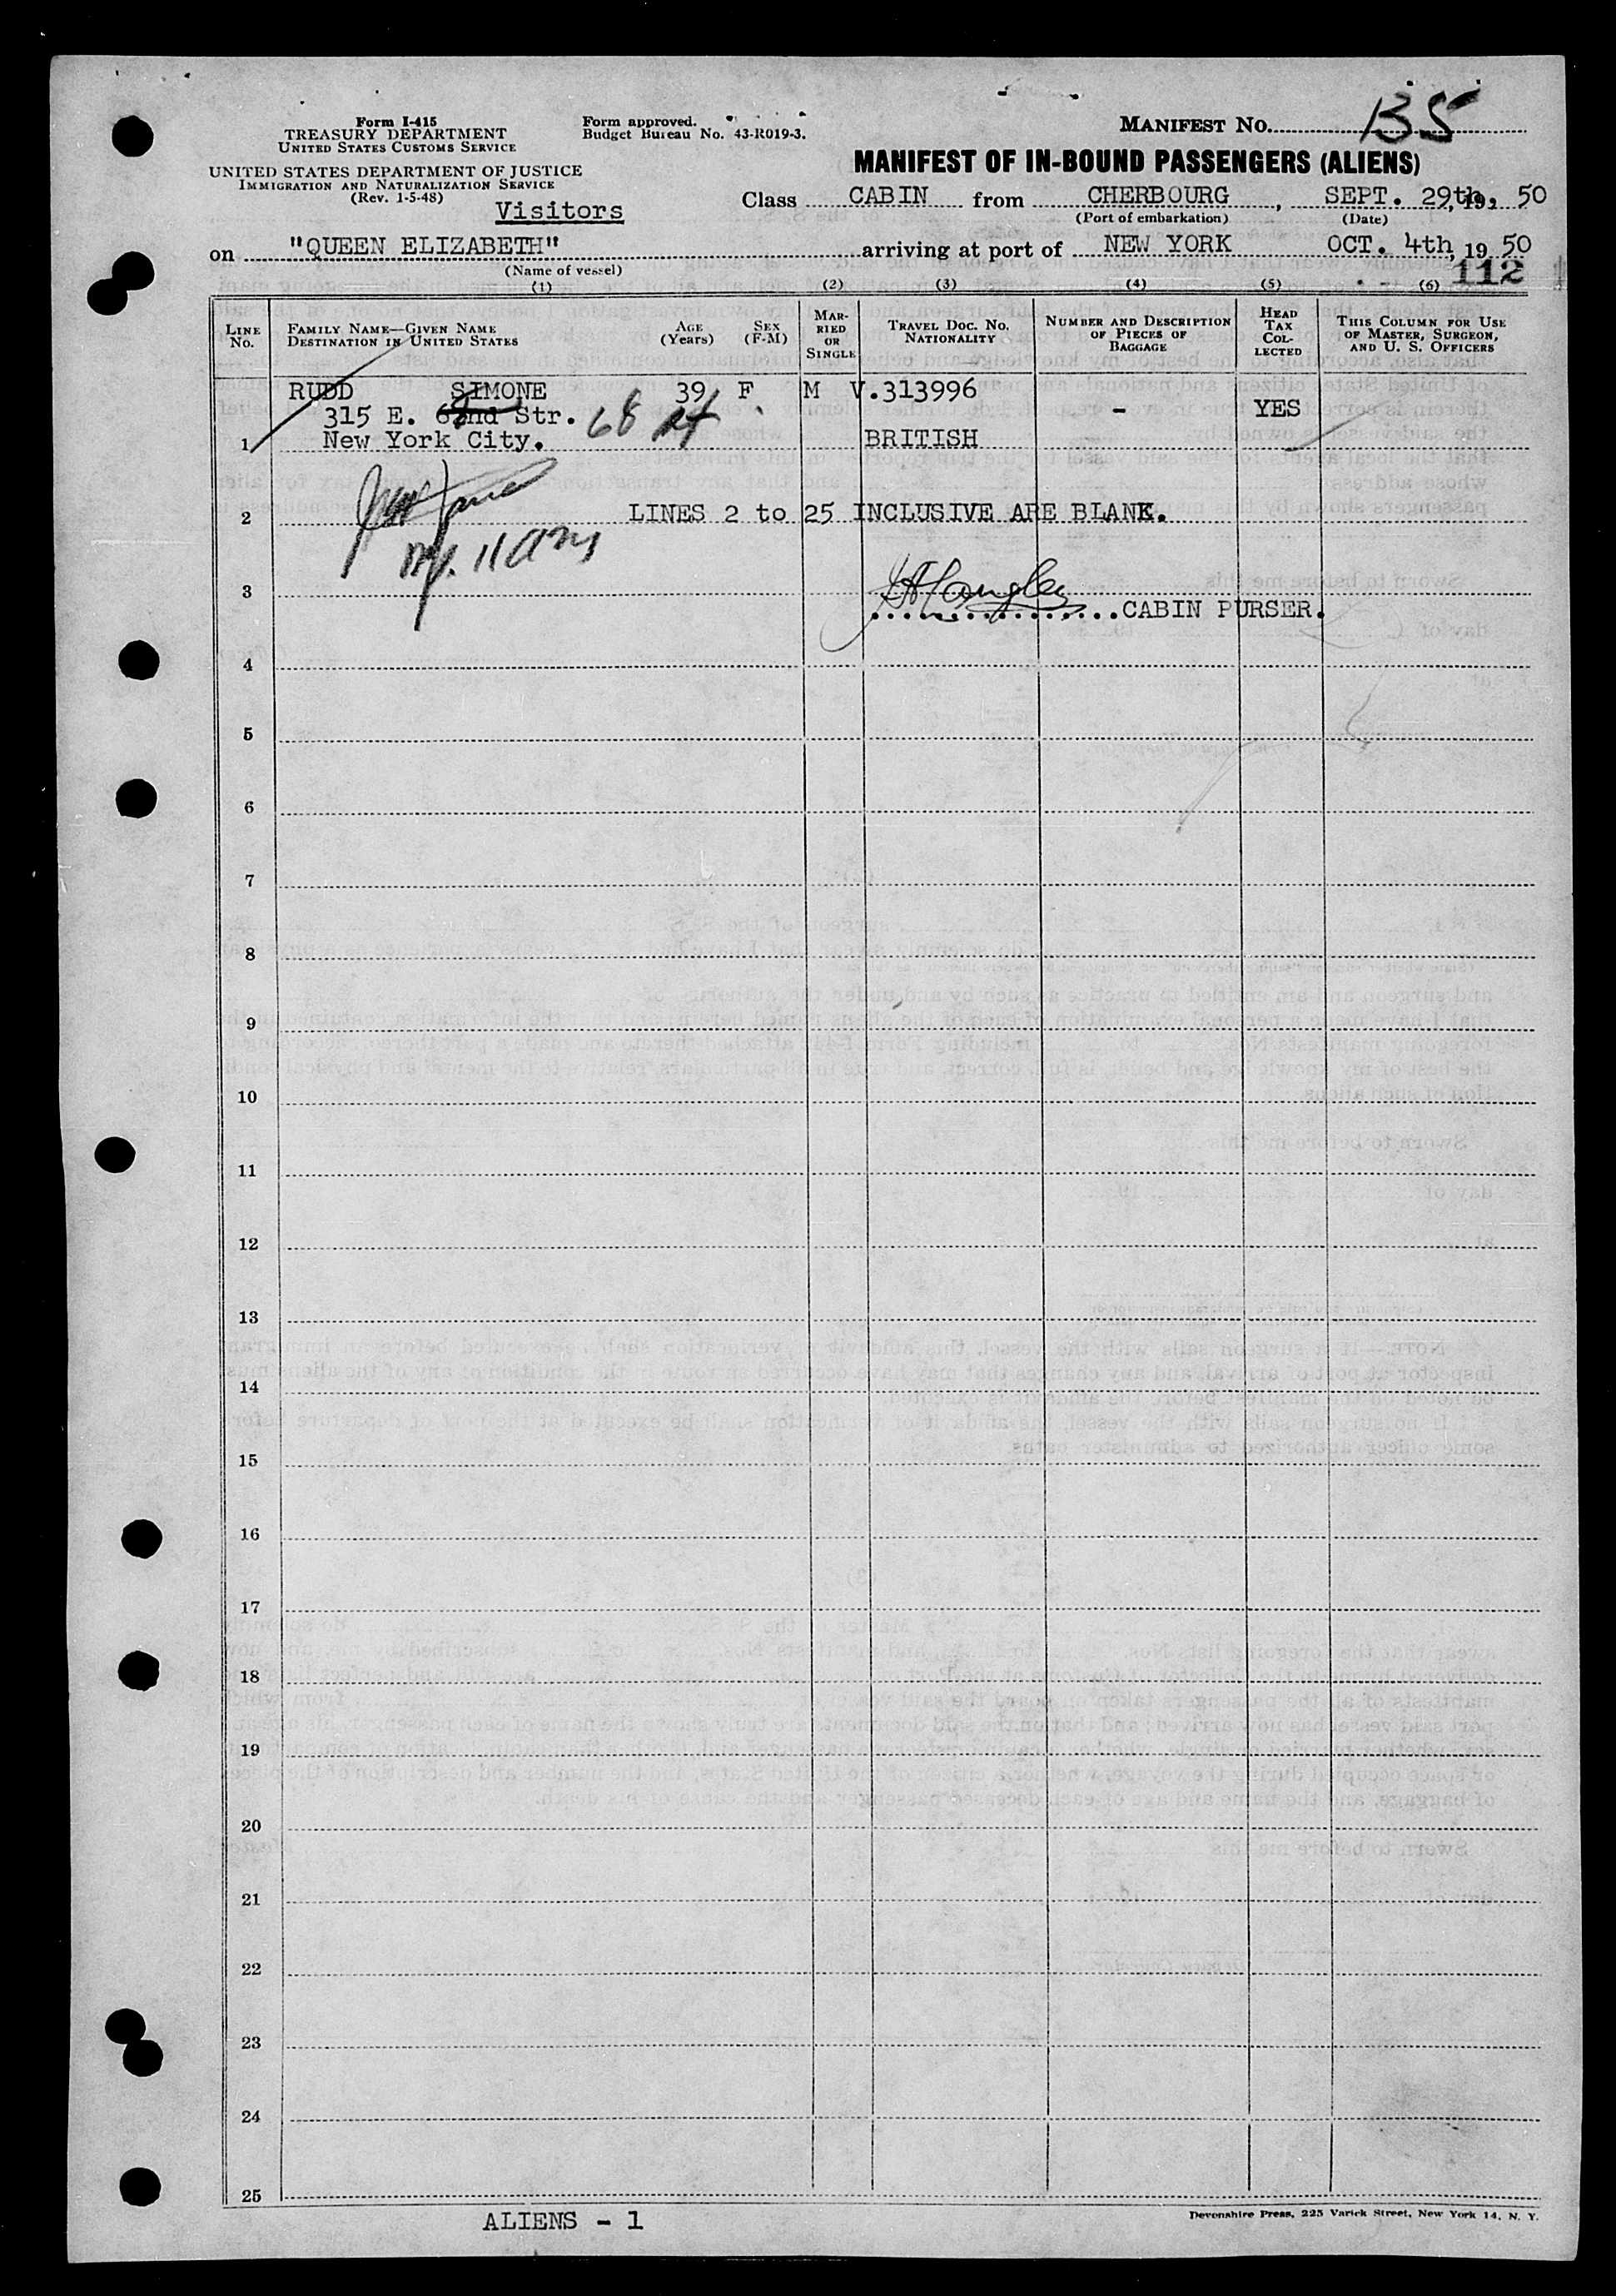 Form I-415
TREASURY DEPARTMENT
UNITED STATES CUSTOMS SERVICE
UNITED STATES DEPARTMENT OF JUSTICE
IMMIGRATION AND NATURALIZATION SERVICE
(Rev. 1-5-48)
Visitors
Form approved.
Budget Bureau No. 43-R019-3.
MANIFEST NO. B5
MANIFEST OF IN-BOUND PASSENGERS (ALIENS)
Class CABIN from CHERBOURG, SEPT. 29th, 19, 50
(Port of embarkation) (Date)
on "QUEEN ELIZABETH" arriving at port of NEW YORK OCT. 4th, 19 50
(Name of vessel)
112
(1) (2) (3) (4) (5) (6)
LINE No. FAMILY NAME—GIVEN NAME DESTINATION IN UNITED STATES AGE (Years) SEX (F-M) MARRIED OR SINGLE TRAVEL DOC. NO. NATIONALITY NUMBER AND DESCRIPTION OF PIECES OF BAGGAGE HEAD TAX COLLECTED THIS COLUMN FOR USE OF MASTER, SURGEON, AND U. S. OFFICERS
RUDD SIMONE 39 F M V.313996
315 E. 62nd Str. 68 - YES
1 New York City. BRITISH
2 LINES 2 to 25 INCLUSIVE ARE BLANK.
3
CABIN PURSER.
4
5
6
7
8
9
10
11
12
13
14
15
16
17
18
19
20
21
22
23
24
25
ALIENS - 1
Devonshire Press, 225 Varick Street, New York 14, N. Y.